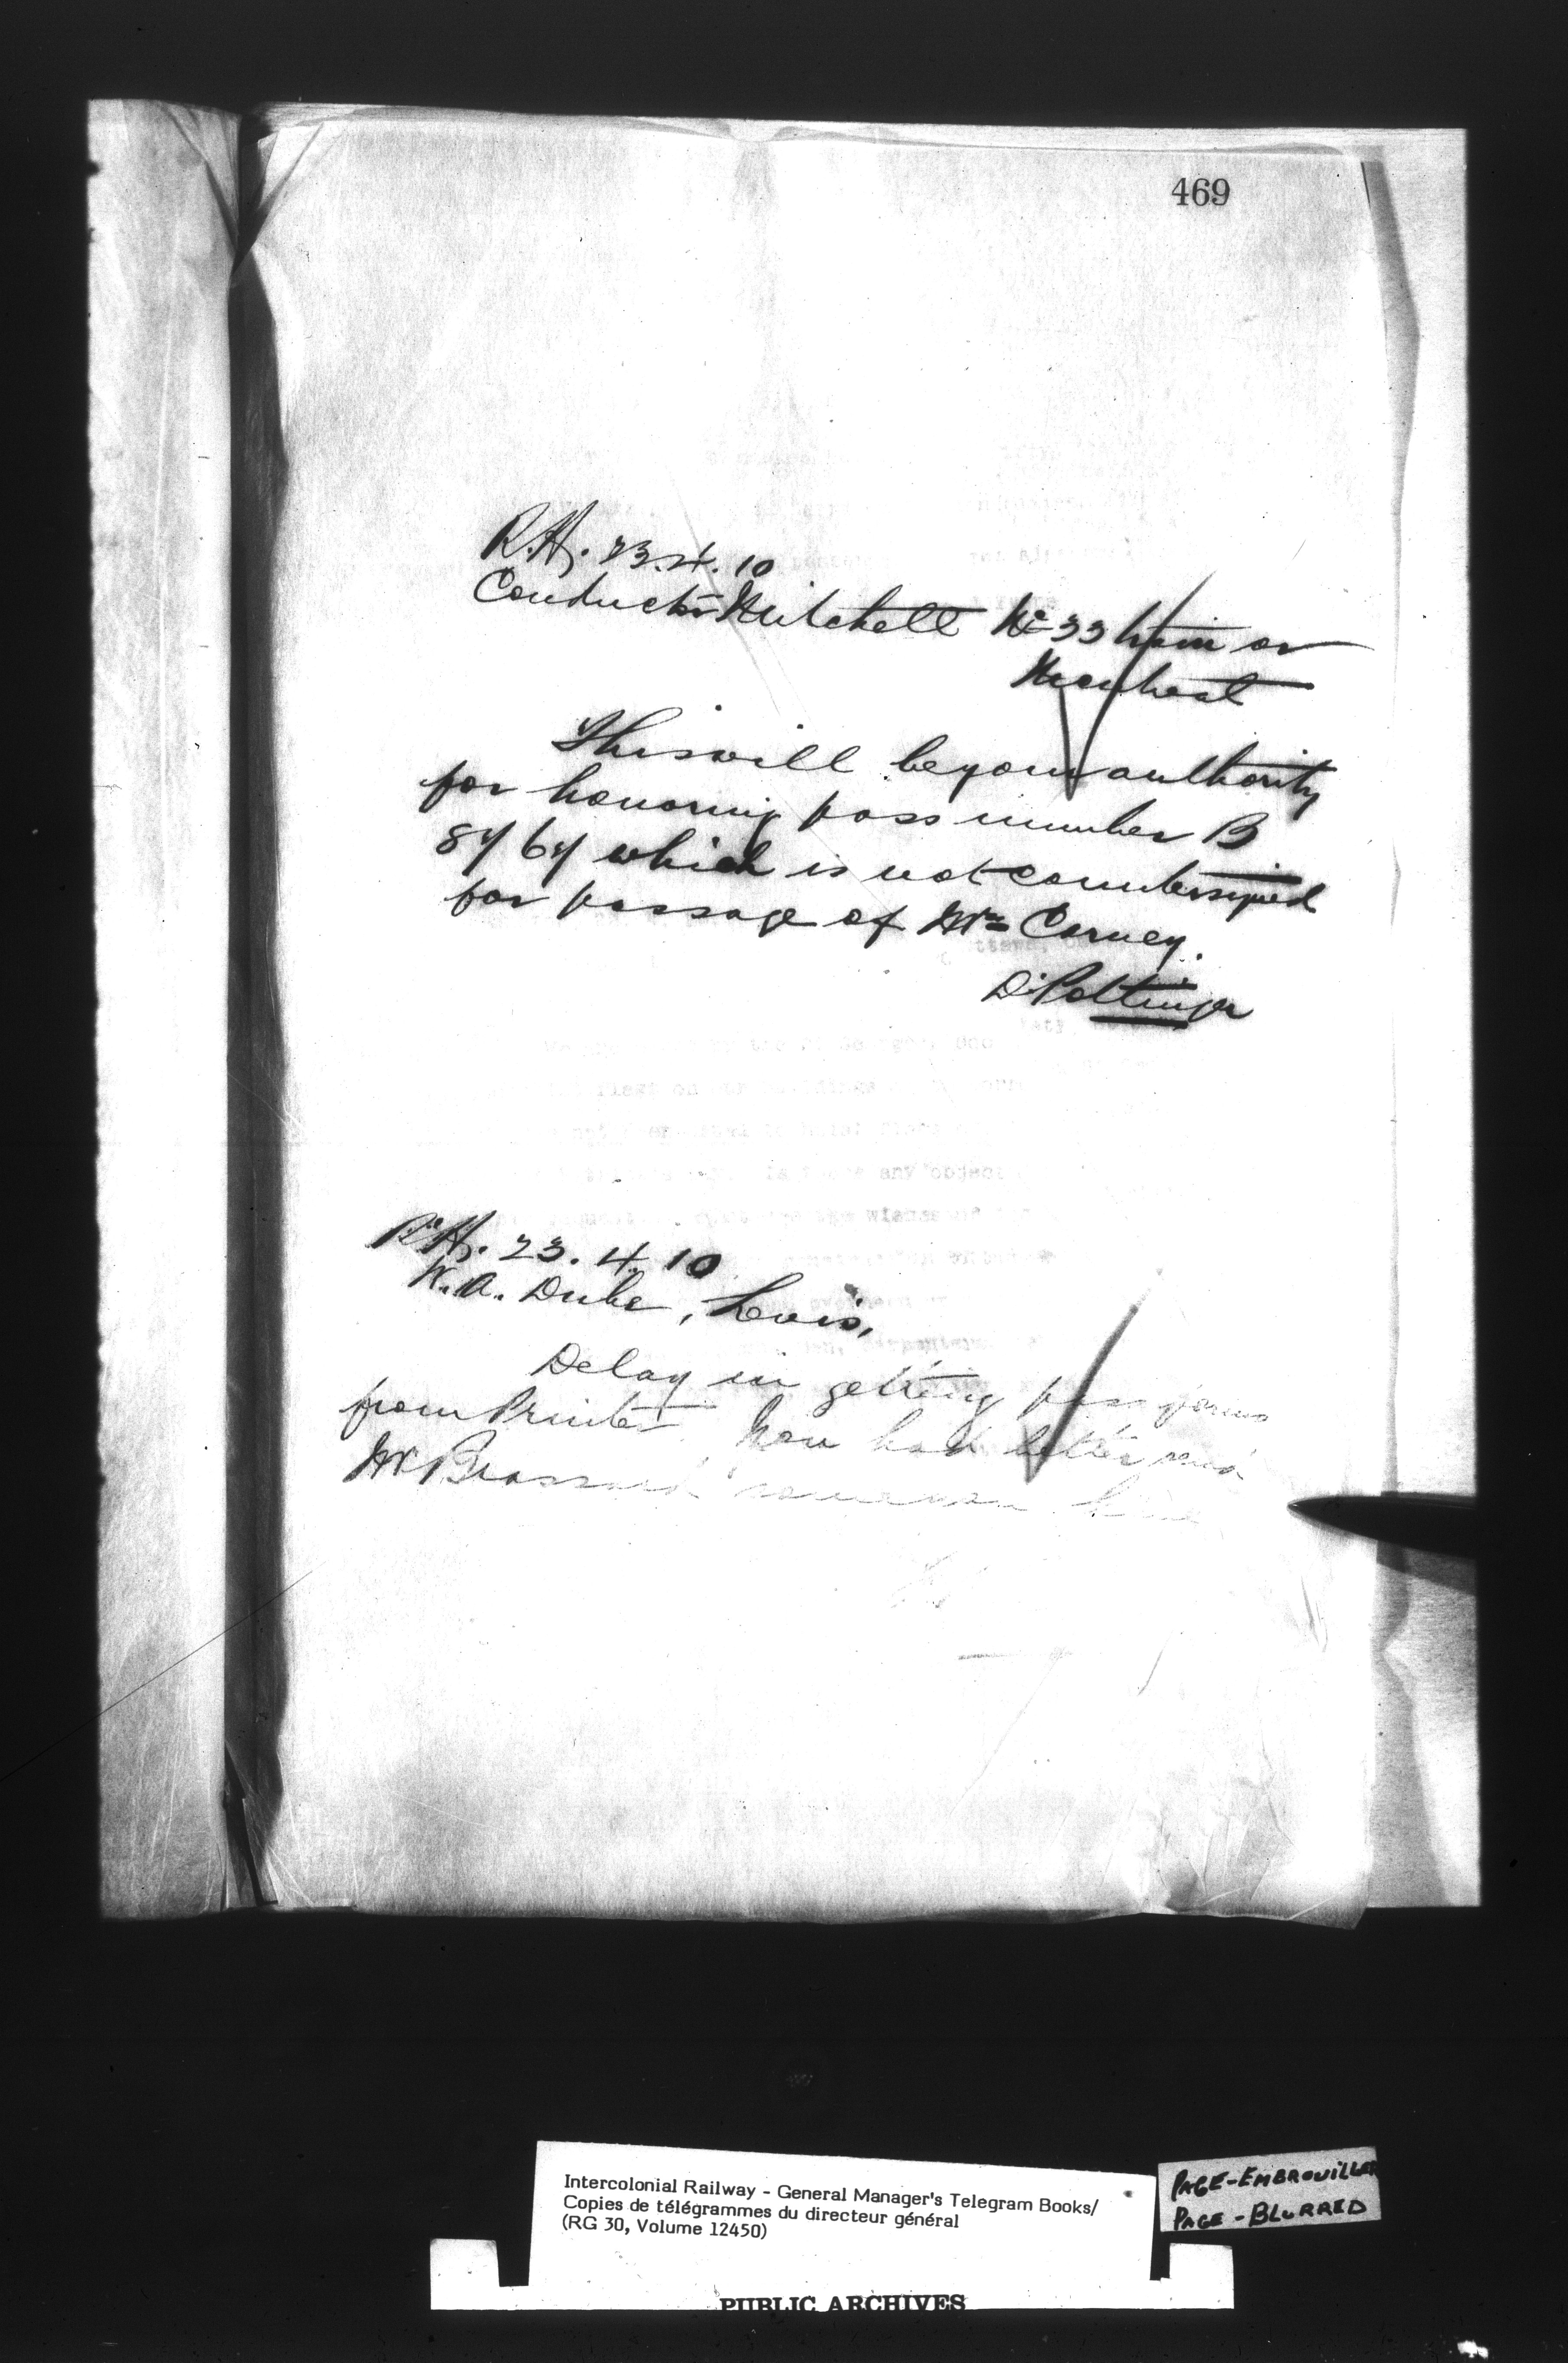 469
R.H. 23.4.10
Conductor Mitchell No 33 train or
This will be your authority
for honoring pass number B
8767 which is not countersigned
for passage of Mr Carney.
D. Pottinger
R.H. 23.4.10
W.A. Dube, Levis,
Delay in getting pass forms
from Printer. You had better send
Mr Brassard some more
Intercolonial Railway - General Manager's Telegram Books/
Copies de télégrammes du directeur général
(RG 30, Volume 12450)
PAGE-EMBROUILLEE
PAGE-BLURRED
PUBLIC ARCHIVES